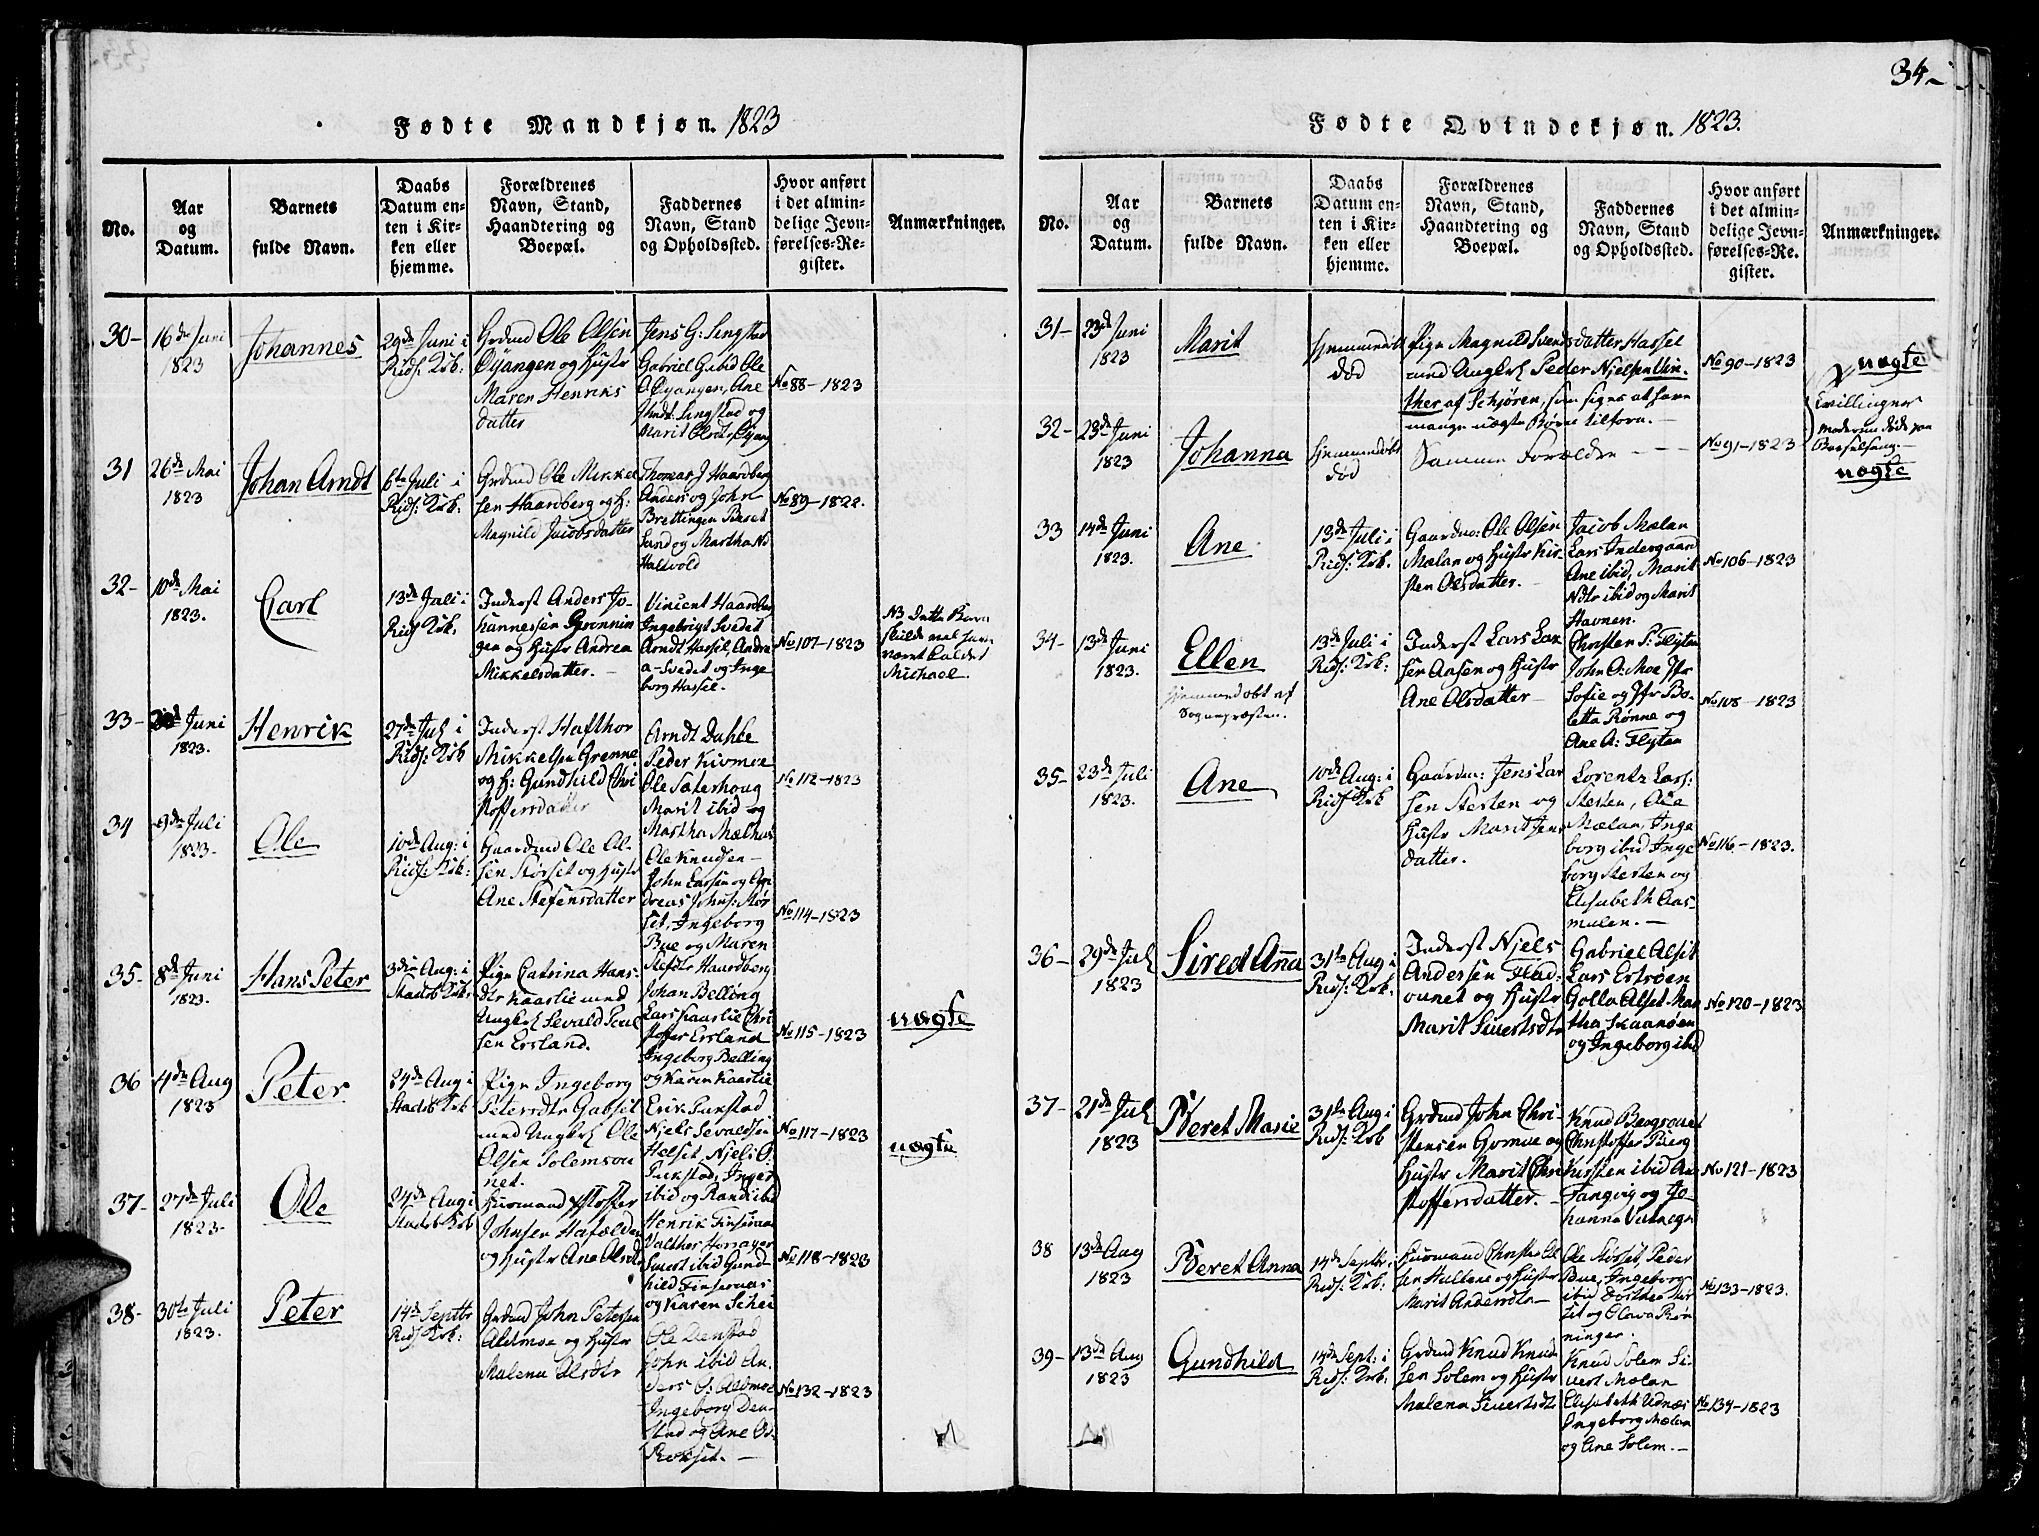 34
Fødte Mandkjøn. 1823
No.
Aar
og
Datum.
Barnets
fulde Navn.
Daabs
Datum en-
ten i Kir-
ken eller
hjemme.
Forældrenes
Navn, Stand,
Haandtering og
Boepæl.
Faddernes
Navn, Stand
og Opholdssted.
Hvor anført
i det almin-
delige Jevn-
førelses-Re-
gister.
Anmærkninger.
30-
16de Juni
1823
Johannes
29de Juni i
Ole Olsen
Øyangen og Hustr
Maren Henriks
datter
Gabriel G. ibid Ole
O Øyangen, Ane
No 88-1823
31
26de Mai
1823
Johan Arndt
6te Juli i
Ole Mikkel
sen Haardberg og H:
Magnild Jacobsdatter
Thomas J Haardberg
Anders og John
Brettingen Beret
Sund og Martha
No 89-1822.
32-
10de Mai
1823.
Carl
13de Juli i
Inderst Anders Jo-
hannessen Grønnin
gen og Hustr Andrea
Mikkelsdatter.
Vincent Haardber
Ingebrigt Svedet
Arndt Hassel, Andre
a Svedet og Inge
borg Hassel.
No 107-1823
NB dette Barn
skulde vel have
været kaldet
Michael.
33-
Juni
1823.
Henrik
27de Jul i
Inderst Hafthor
Mikkelsen Grønne
og H: Gundhild Chri
stoffersdatter
Arndt Dahle
Peder Kivmoe
Ole Sæterhoug
Marit ibid og
Martha Mælhus
No 112-1823
34
9de Juli
1823-
Ole
10de Aug: i
Gaardmd Ole Ol-
sen Størset og Hustr
Ane Stefensdatter
Ole Knudsen
John Larsen og An
dreas Johns: Stør
set, Ingeborg
Bue og Maren
Stefdtr Haardberg
No 114-1823
35-
8de Juni
1823.
Hans Peter
3die Aug: i
Stads Krk:
Pige Catrina Hans-
dtr Kaarlie med
Ungkrl Sevald Poul
sen Ersland.
Johan Belling
Lars Kaarlie Chri
stoffer Ersland
Ingeborg Belling
og Karen Kaarlie
No 115-1823
uægte
36
4de Aug
1823
Peter
24de Aug i
Stads Krk
Pige Ingeborg
Petersdtr Gabset
med Ungkrl Ole
Olsen Solemsou
net.
Niels Sevaldsen
ibid og Randi ibid
No 117-1823
uægte
37-
27de Juli
1823-
Ole
24de Aug i
Stads Krk
Huusmand
Johnsen
og Hustr Ane Olsdtr
Henrik
Sivert ibid Gund
hild
og Karen Schei
No 118-1823
38-
30te Juli
1823.
Peter
14de Septbr
John Petersen
Aldmoe og Hustr
Malena Olsdtr
Ole Denstad
John ibid An-
ders O: Aldmoe
Ingeborg Den-
stad og Ane
No 132-1823
Fødte Qvindekjøn. 1823.
No.
Aar
og
Datum.
Barnets
fulde Navn.
Daabs
Datum en-
ten i Kir-
ken eller
hjemme.
Forældrenes
Navn, Stand,
Haandtering og
Boepæl.
Faddernes
Navn, Stand
og Opholdssted.
Hvor anført
i det almin-
delige Jevn-
førelses-Re-
gister.
Anmærkninger.
31-
23de Juni
1823
Marit
hjemmedøbt
død
Pige Magnild Svendsdatter Hassel
med Ungkrl Peder Njelsen Uin-
ther af Schjøren, som siges at have
mange uægte Børn tilforn.
No 90-1823
uægte
Tvillinger
Moderen døde paa
Barselseng.
32-
23de Juni
1823
Johanna
hjemmedøbt
død
Samme Forældre
No 91-1823
uægte
33
14de Juni
1823.
Ane
13de Juli i
Gaardm: Ole Olsen
Mælan og Hustr Kir-
sten Olsdatter.
Jacob Mælan
Lars Indergaard
Ane ibid, Marit
Ndtr ibid og Marit
Havnen.
No 106-1823
34-
13de Juni
1823.
Ellen
hjemmedøbt af
Sognepræsten.
13de Juli i
Inderst Lars Lar
sen Aasen og Hustr
Ane Olsdatter
Christen P: Flyten
John O: Moe Jfr
Sofie og Jfr Bo-
letta Rønne og
Ane A: Flyten
No 108-1823
35-
23de Juli
1823.
Ane
10de Aug: i
Gaardm: Jens Lar
sen Sterten og
Hustr Marit Jens
datter.
Lorentz Lars:
Sterten, Ane
Mælan, Inge
borg ibid Inge
borg Sterten og
Elisabeth Aas-
mulen.
No 116-1823.
36-
29de Jul
1823
Sired Anna
31te Aug i
Inderst Njels
Andersen Flad-
ounet og Hustr
Marit Siuertsdtr
Gabriel Alset
Lars Estrøen
Golla Alset Mar
tha Skaanøen
og Ingeborg ibid
No 120-1823
37-
21de Jul
1823
Beret Marie
31te Aug i
John Chri-
stensen Gomoe og
Hustr Marit Chri
stoffersdatter.
Knud Bergsounet
Christoffer Berg
Kirsten ibid Ane
Fangvig og Jo-
hanna
No 121-1823
38
13de Aug
1823
Beret Anna
14de Septbr i
Huusmand Christen Ol
sen Hultene og Hustr
Marit Andersdtr
Ole Størset, Peder
Bue, Ingeborg
set og Olava Røn
ninger.
No 133-1823.
39-
13de Aug
1823
Gundhild
14de Sept: i
Knud Knud
sen Solem og Hustr
Malena Siuertsdtr
Knud Solem Si-
vert Mælan
Elisabeth Udnæs
Ingeborg Mælan
og Ane Solem.
No 134-1823